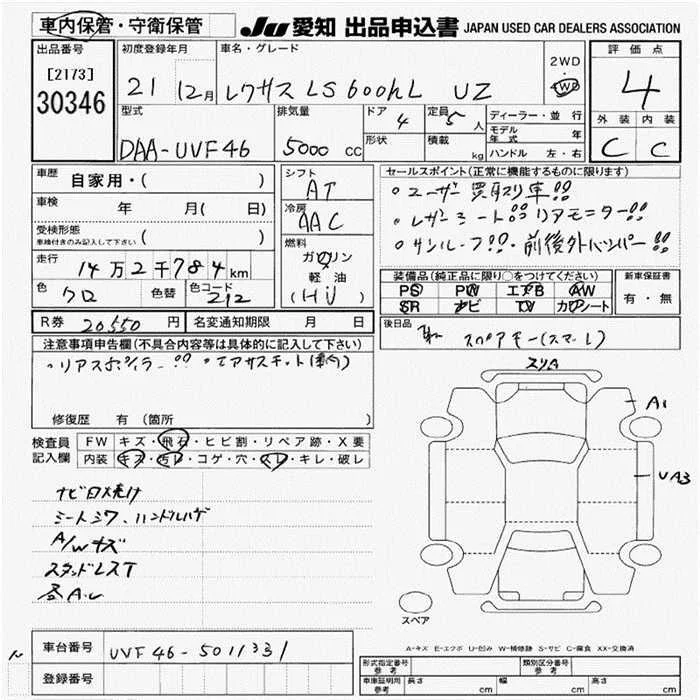 車内保管・守衛保管
JU 愛知 出品申込書 JAPAN USED CAR DEALERS ASSOCIATION
出品番号 初度登録年月 車名・グレード 2WD 評価点
[2173]
30346
21 12月 レクサス LS600hL UZ 4WD 4
型式 排気量 ドア 4 定員 5人 ディーラー・並行 外装 内装
DAA-UVF46 5000 CC 形状 積載 kg モデル年式 年 C C
ハンドル 左・右
車歴 自家用・( ) シフト AT
セールスポイント(正常に機能するものに限ります)
車検 年 月( 日) 冷房 AAC
・ユーザー買取り車!!
・レザーシート!! リアモニター!!
・サンルーフ!!・前後外バンパー!!
受検形態 ( )
車検付きのみ記入して下さい
燃料 ガソリン
軽油
(HU)
走行 14万2千784km
装備品(純正品に限り○をつけてください) 新車保証書
PS PW エアB AW
SR ナビ TV カワシート
有・無
色 クロ 色替 色コード 212
R券 20,550円 名変通知期限 月 日
後日品 スペアキー(スマート)
注意事項申告欄(不具合内容等は具体的に記入して下さい)
・リアスポイラー!!
修復歴 有(箇所
スリA
A1
UA3
検査員 FW キズ・飛石・ヒビ割・リペア跡・X要
記入欄 内装 キズ・汚レ・コゲ・穴・スレ・キレ・破レ
ナビ日焼け
シートシワ、ハンドルハゲ
A/Wキズ
スタッドレスT
各A.U
スペア
A-キズ E-エクボ U-凹み W-補修跡 S-サビ C-腐食 XX-交換済
車台番号 UVF46-5011331
登録番号
形式指定番号 参考 類別区分番号 参考
車庫証明用 参考 長さ cm 幅 cm 高さ cm